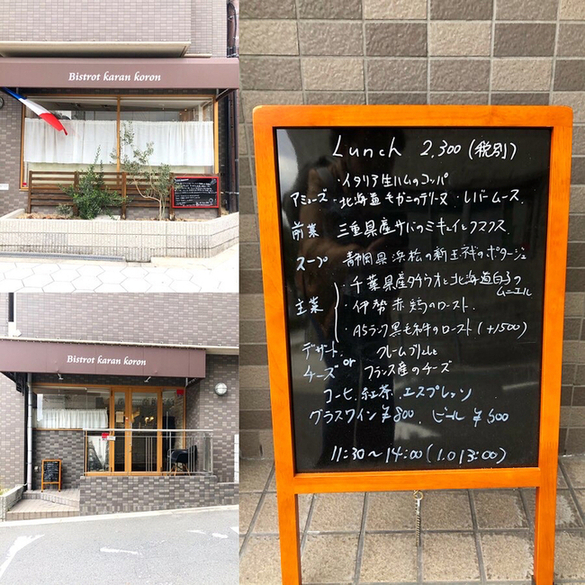 Bistrot karan koron
Bistrot karan koron
Lunch 2,300 (税別)
・イタリア生ハムのコッパ
アミューズ・北海道毛ガニのテリーヌ・レバームース.
前菜 三重県産サバのミキュイとクスクス.
スープ 静岡県浜松の新玉ねぎのポタージュ
・千葉県産タチウオと北海道白子の
ムニエル
主菜 ・伊勢赤鶏のロースト.
・A5ランク黒毛和牛のロースト (+1500)
デザート. クレームブリュレ
or
チーズ フランス産のチーズ
コーヒー. 紅茶. エスプレッソ
グラスワイン ¥800. ビール ¥600
11:30～14:00 (L.O 13:00)